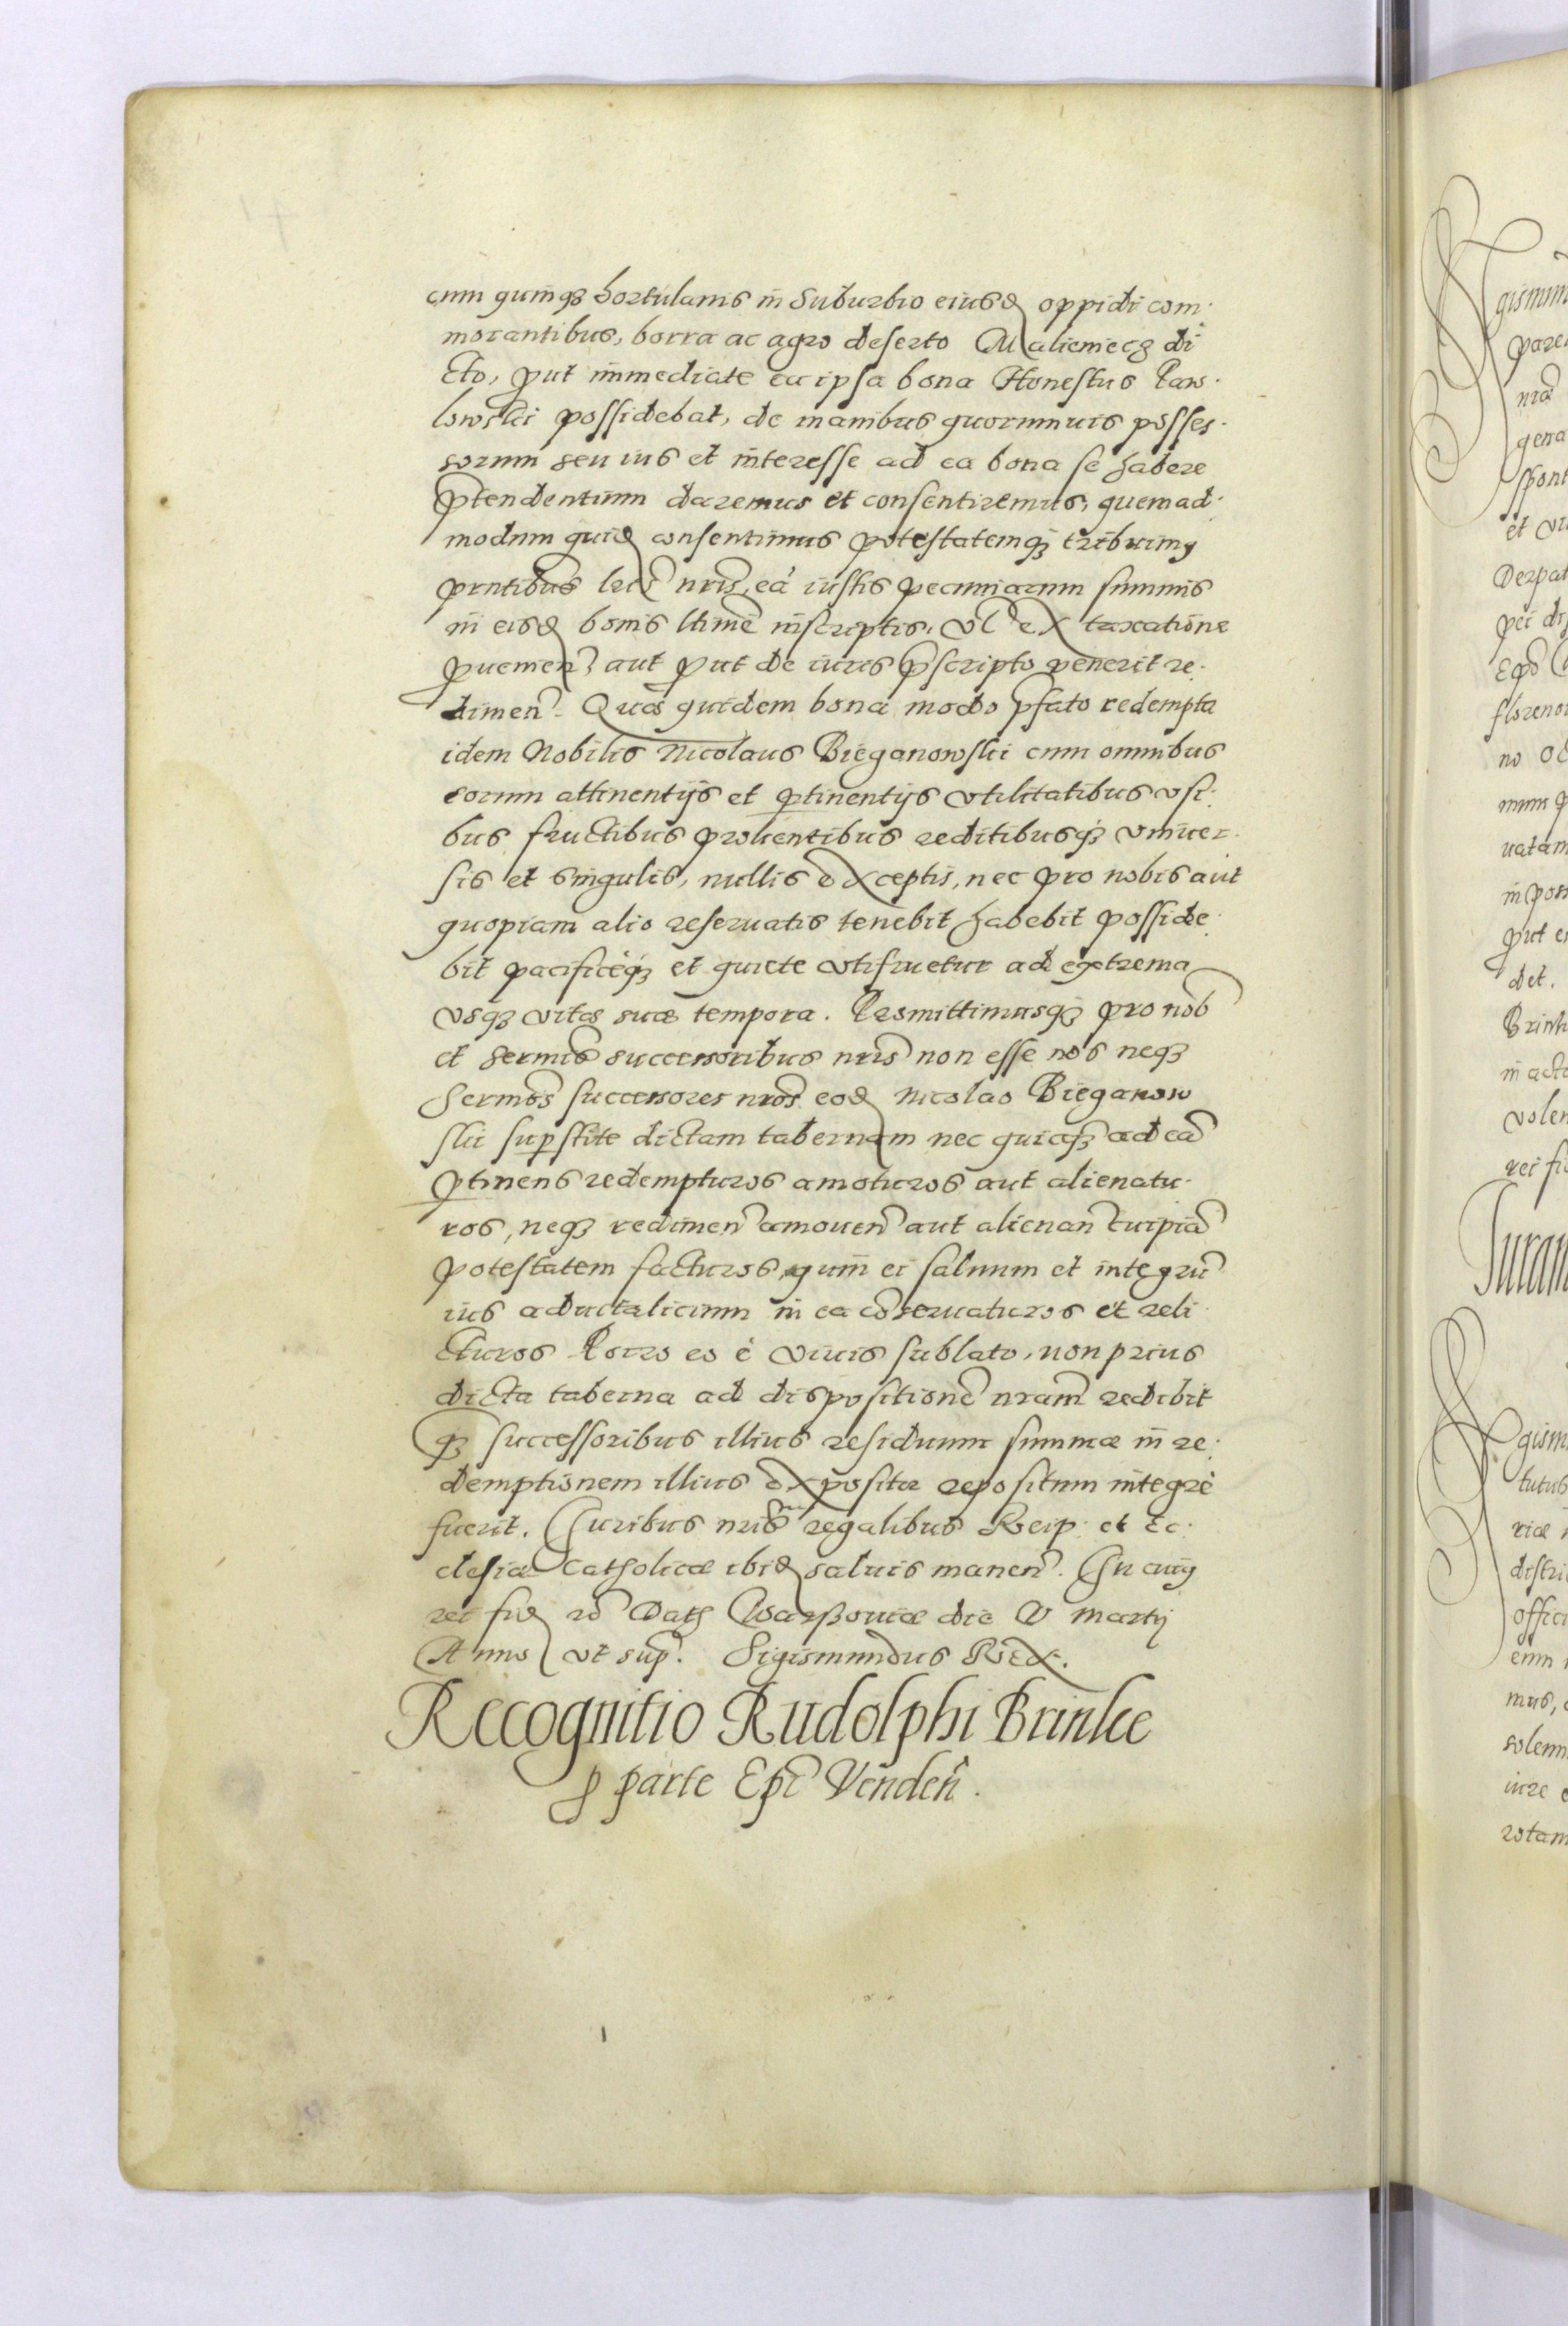 cum quinq3 hortulanis in suburbio eiusd oppidi com-
morantibus, borra ac agro deserto Maliemiecz di
cto, put immediate ea ipsa bona Honestus Paw-
lowski possidebat, de manibus quorumuis posses-
sorum seu ius et interesse ad ea bona se habere
ptendentium daremus et consentiremus, quemad-
modum quid consentimus potestatemq3 tribuimg
pntibus lris nris, eà iustis pecuniarum summis
in eisd bonis ltime inscriptis, vl ex taxatione
puemen, aut put de iuris pscripto venerit re-
dimen. Quas quidem bona modo pfato redempta
idem Nobilis Nicolaus Bieganowski cum omnibus
eorum attinentijs et ptinentijs vtilitatibus vsi-
bus fructibus prouentibus reditibusq3 vniuer-
sis et singulis, nullis exceptis, nec pro nobis aut
quopiam alio reseruatis tenebit habebit posside-
bit pacificèq3 et quiete vtifruetur ad extrema
vsq3 vitæ suæ tempora. Promittimusq3 pro nob
et sermis successoribus nris non esse nos neq3
sermos successores nros eod Nicolao Bieganow
ski supstite dictam tabernam nec quicq3 ad eã
ptinens redempturos amoturos aut alienatu-
ros, neq3 redimen amouen aut alienan cuipiã
potestatem facturos, quin ei saluum et integrũ
ius aduitalicium in ea coseruaturos et reli-
cturos Porro eo è viuis sublato, non prius
dicta taberna ad dispositione nram redibit
q3 successoribus illius residuum summæ in re-
demptionem illius expositæ repositum integrè
fuerit. Iuribus nris regalibus Reip. et Ec-
clesiæ Catholicæ ibid saluis manen. In cuig
rei fid Dat Warßouiæ die V Martij
Anno vt sup. Sigismundus Rex.
Recognitio Rudolphi Brinke
p parte Epi Venden.